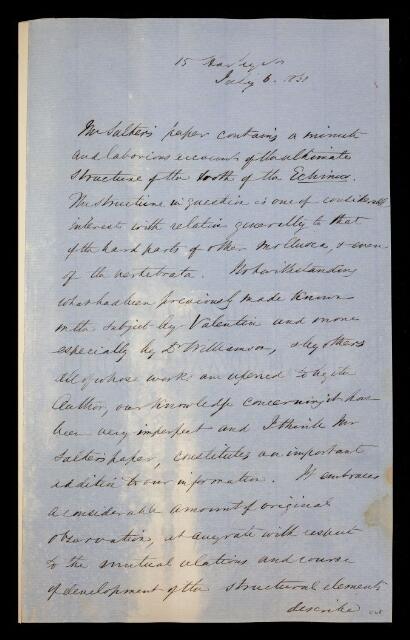 15 Harley St
July 6. 1861
Mr Salter's paper contains a minute
and laborious account of the ultimate
structure of the tooth of the Echinus.
The structure in question is one of considerable
interest with relation generally to that
of the hard parts of other Mollusca, & even
of the vertebrata. Notwithstanding
what had been previously made known
on the subject by Valentin and more
especially by Dr Williamson, & by others
all of whose works are referred to by the
Author, our knowledge concerning it has
been very imperfect and I think Mr
Salter's paper, constitutes an important
addition to our information. It embraces
a considerable amount of original
observation, at any rate with respect
to the mutual relations and course
of development of the structural elements
describe